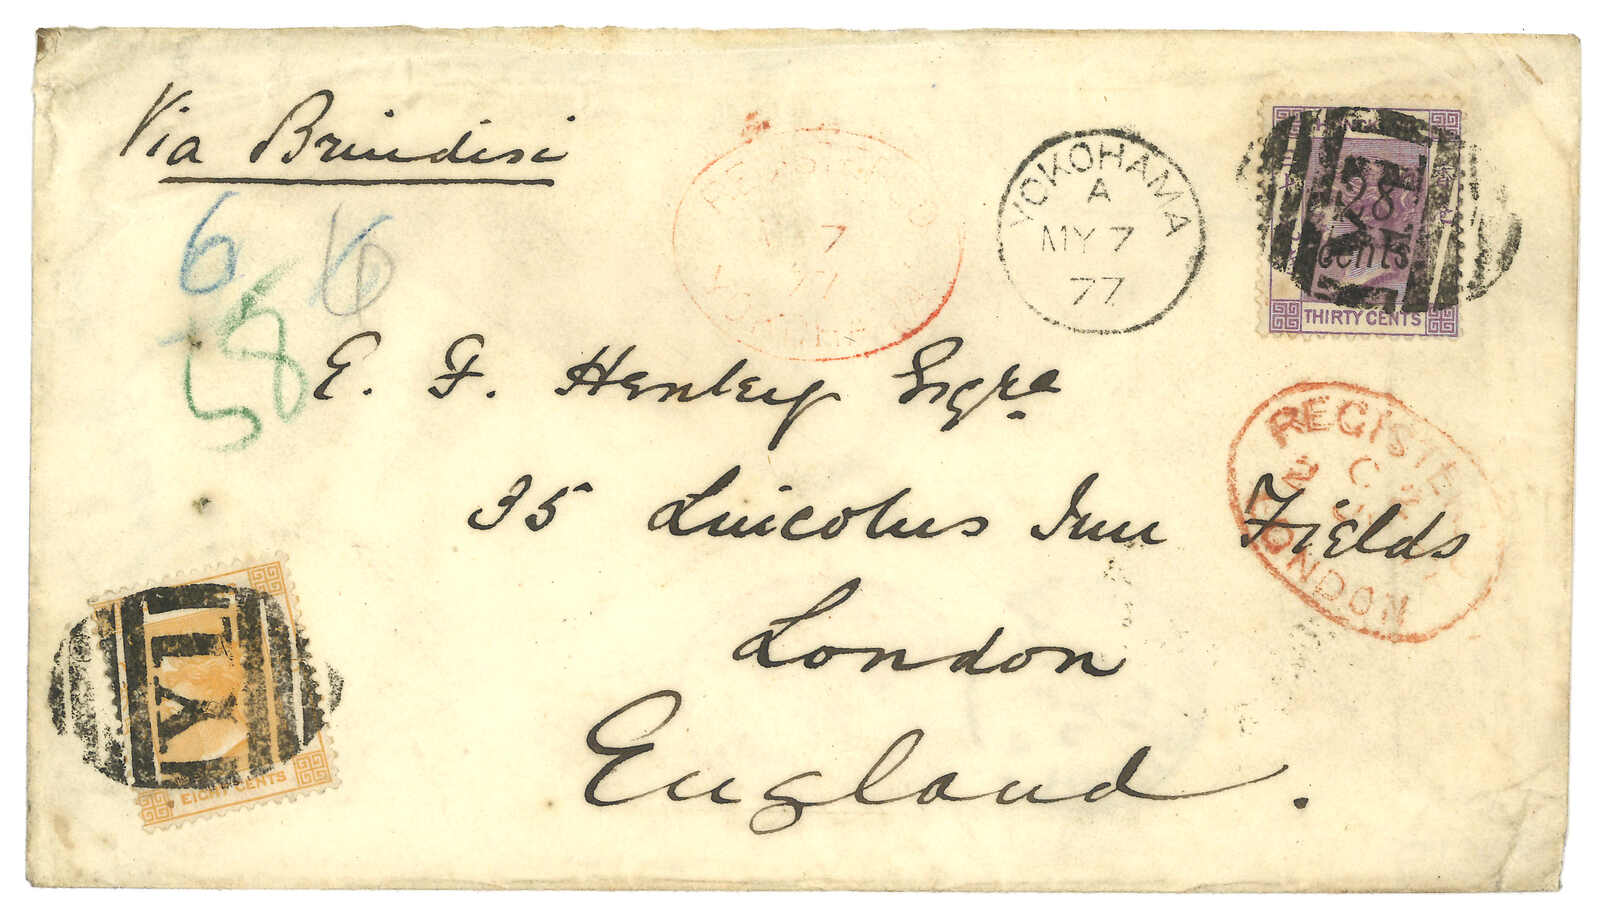 Via Brindisi
REGISTERED
7
77
YOKOHAMA
YOKOHAMA
A
MY 7
77
28
cents
THIRTY CENTS
6 6
58
E. F. Henley Esqre
35 Lincolns Inn Fields
London
England.
REGISTERED
LONDON
Y1
EIGHT CENTS